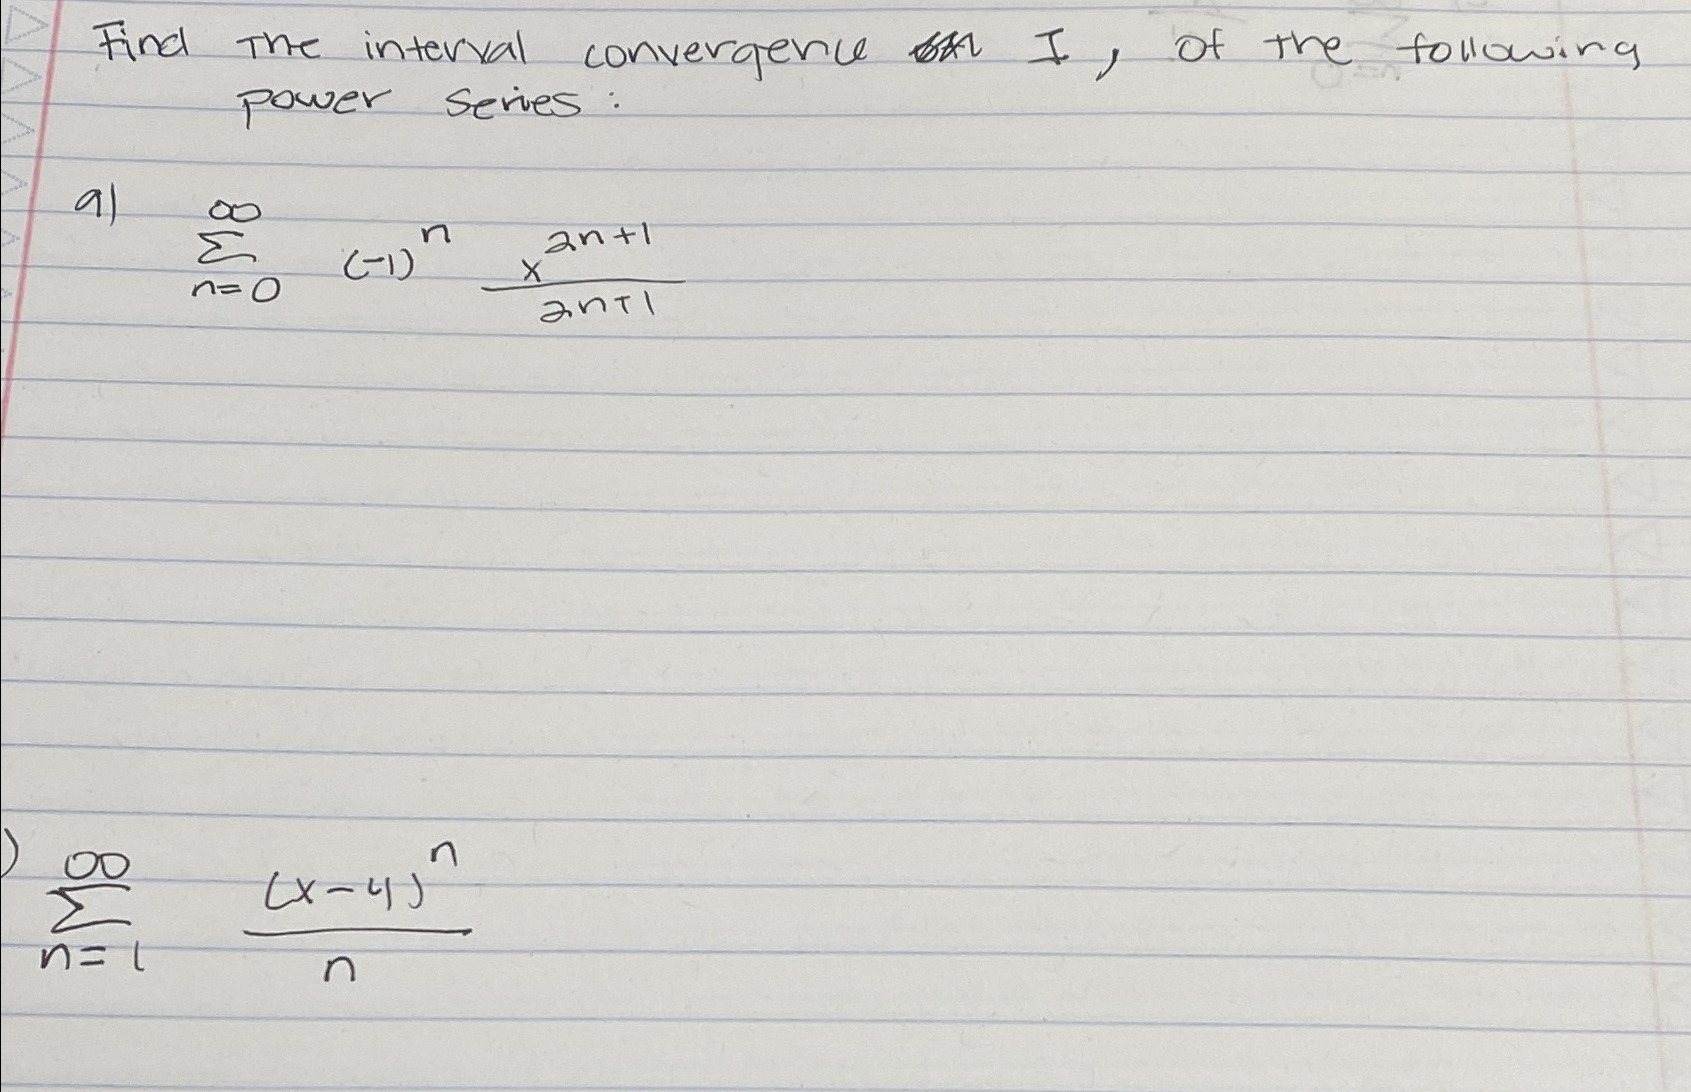 Find The interval convergence I, of the following
power series:
a) ∞ Σ n=0 (-1)^n x^(2n+1) / 2n+1
) ∞ Σ n=1 (x-4)^n / n